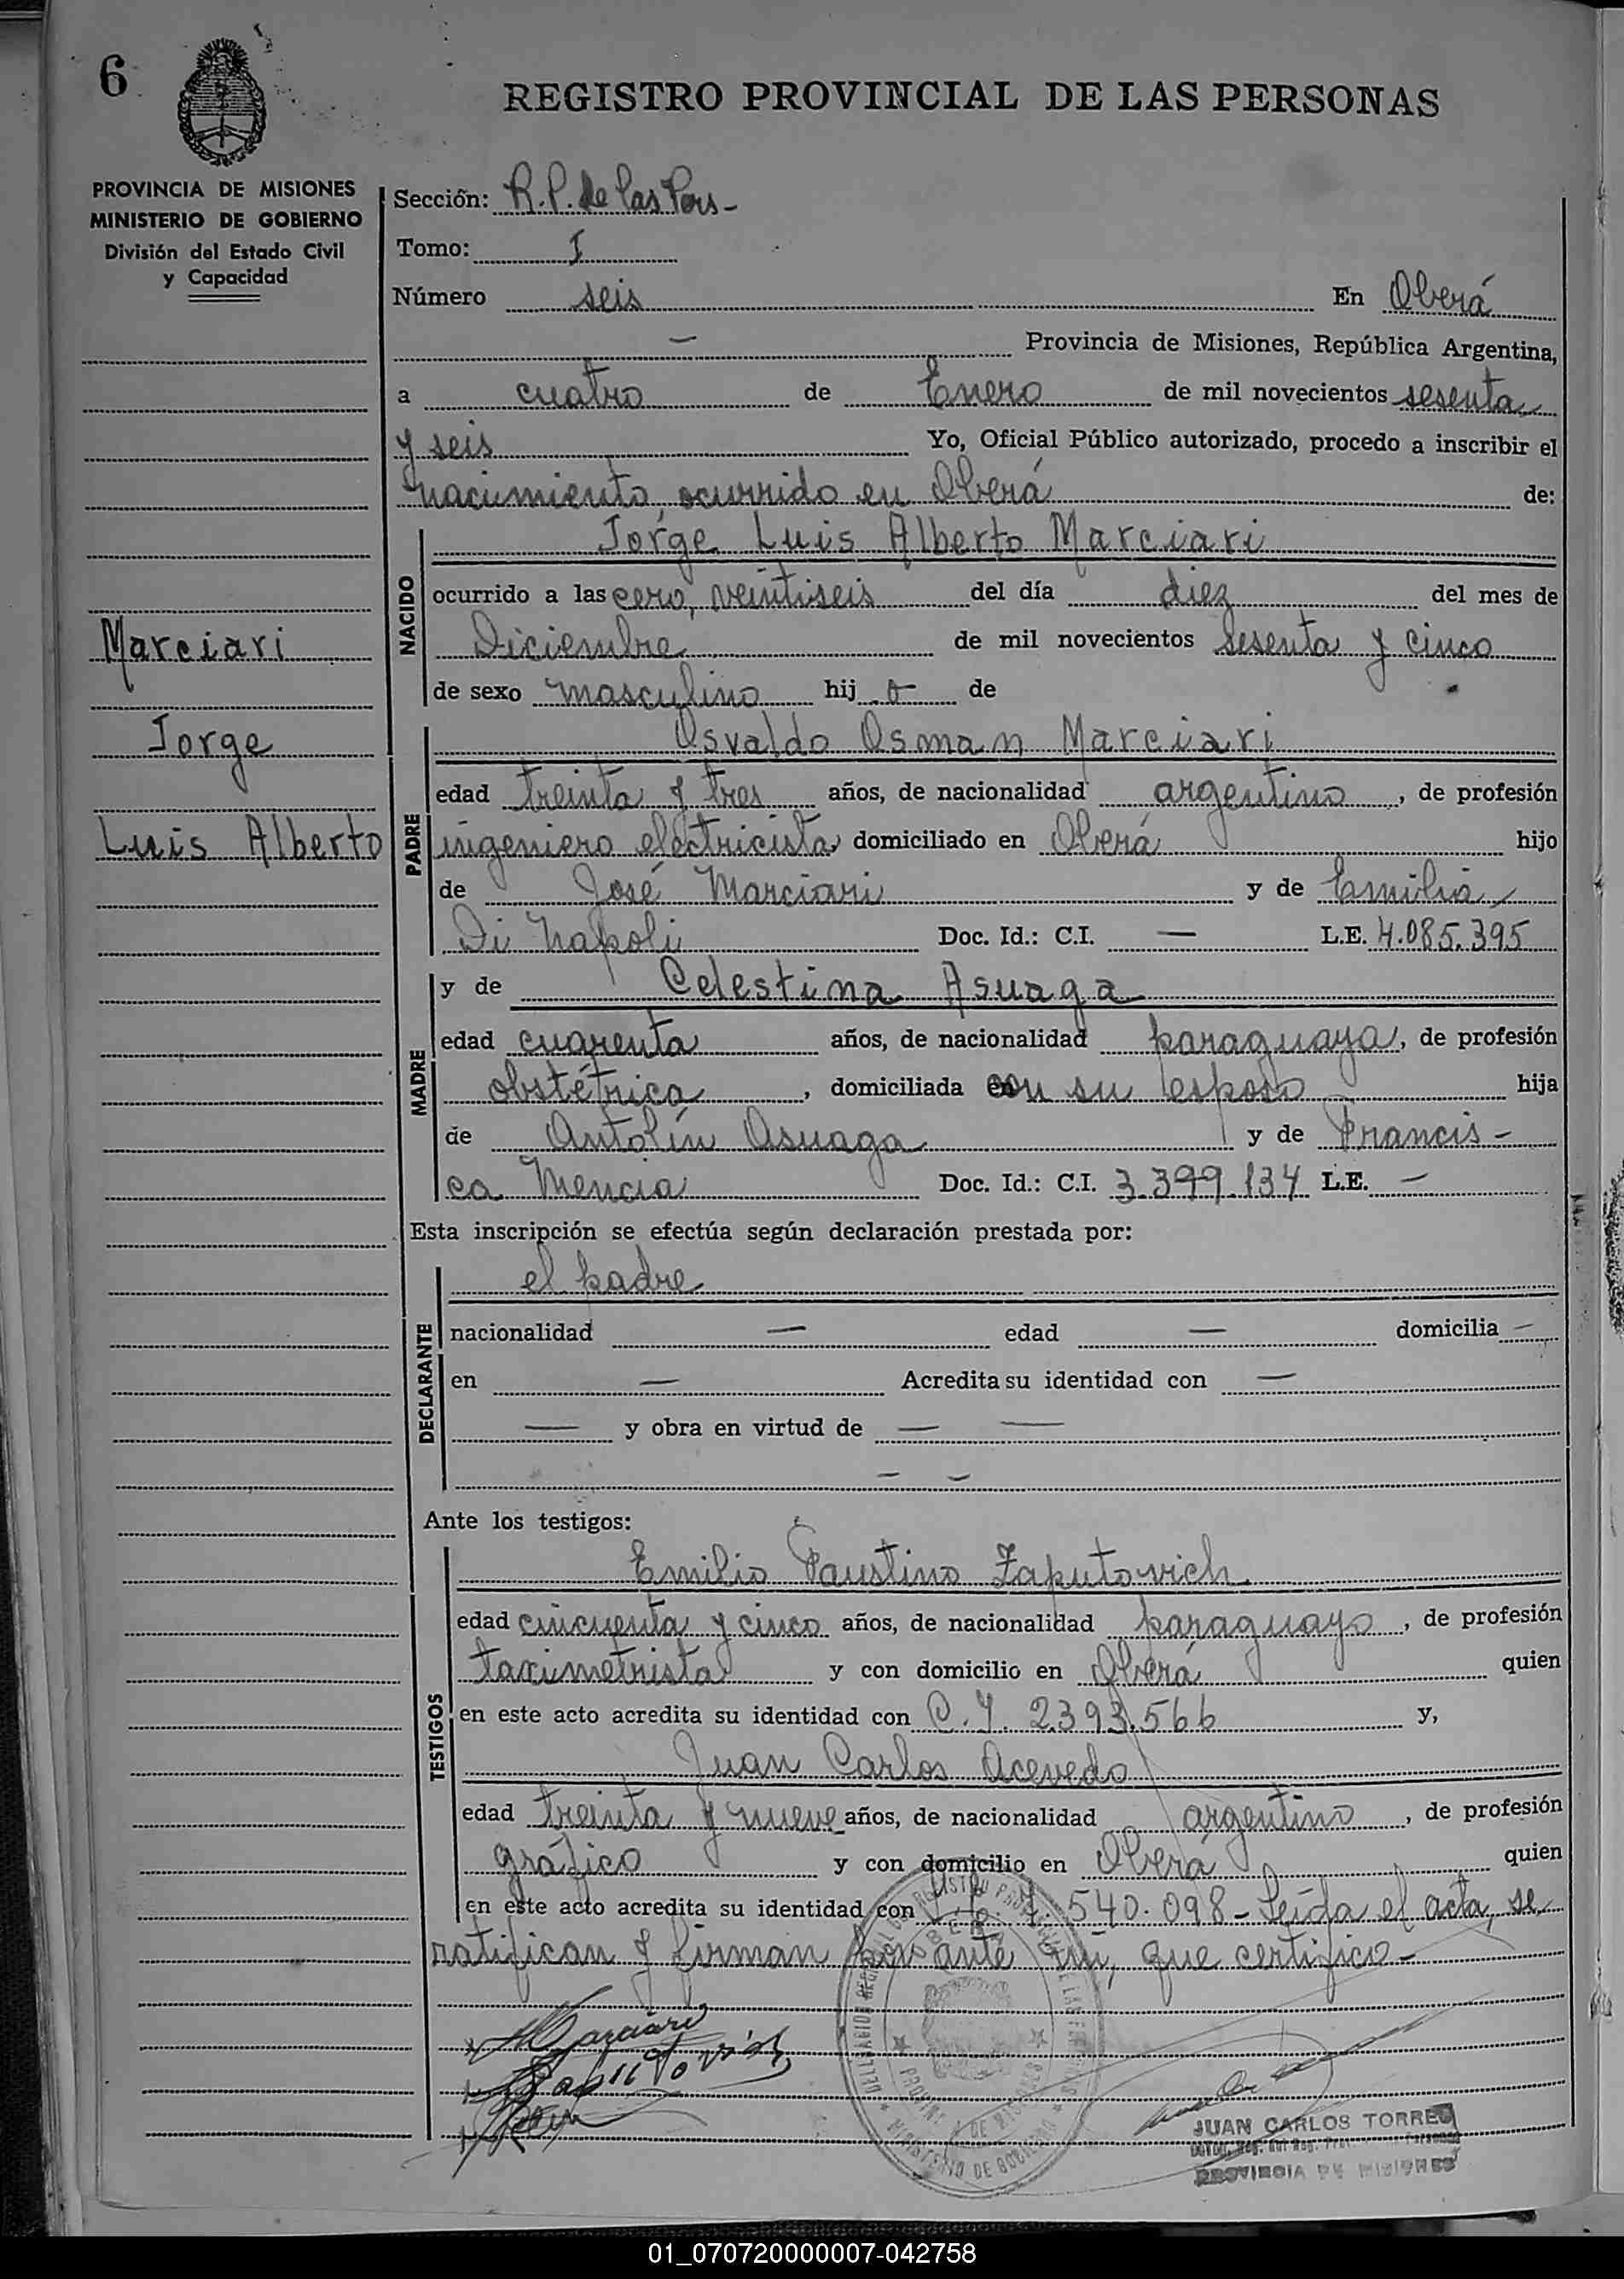 6
REGISTRO PROVINCIAL DE LAS PERSONAS
PROVINCIA DE MISIONES
MINISTERIO DE GOBIERNO
División del Estado Civil
y Capacidad
Sección: R.P. de las Pers-
Tomo: I
Número seis En Oberá
— Provincia de Misiones, República Argentina,
a cuatro de Enero de mil novecientos sesenta
y seis Yo, Oficial Público autorizado, procedo a inscribir el
nacimiento, ocurrido en Oberá de:
NACIDO
Jorge Luis Alberto Marciari
ocurrido a las cero, veintiseis del día diez del mes de
Diciembre de mil novecientos sesenta y cinco
de sexo masculino hij o de
Marciari
Jorge
Luis Alberto
PADRE
Osvaldo Osman Marciari
edad treinta y tres años, de nacionalidad argentino, de profesión
ingeniero electricista domiciliado en Oberá hijo
de José Marciari y de Emilia
Di Napoli Doc. Id.: C.I. — L.E. 4.085.395
MADRE
y de Celestina Asuaga
edad cuarenta años, de nacionalidad paraguaya, de profesión
obstétrica, domiciliada con su esposo hija
de Antolín Asuaga y de Francis-
ca Mencia Doc. Id.: C.I. 3.399.134 L.E. —
Esta inscripción se efectúa según declaración prestada por:
DECLARANTE
el padre
nacionalidad — edad — domicilia —
en — Acredita su identidad con —
— y obra en virtud de — —
— —
Ante los testigos:
TESTIGOS
Emilio Faustino Zaputovich
edad cincuenta y cinco años, de nacionalidad paraguayo, de profesión
taximetrista y con domicilio en Oberá quien
en este acto acredita su identidad con C.I. 2.393.566 y,
Juan Carlos Acevedo
edad treinta y nueve años, de nacionalidad argentino, de profesión
gráfico y con domicilio en Oberá quien
en este acto acredita su identidad con 540.098- Leída el acta, se
ratifican y firman por ante mí, que certifico-
Marciari
Zaputovich
MINISTERIO DE GOBIERNO
JUAN CARLOS TORRES
PROVINCIA DE MISIONES
01_070720000007-042758